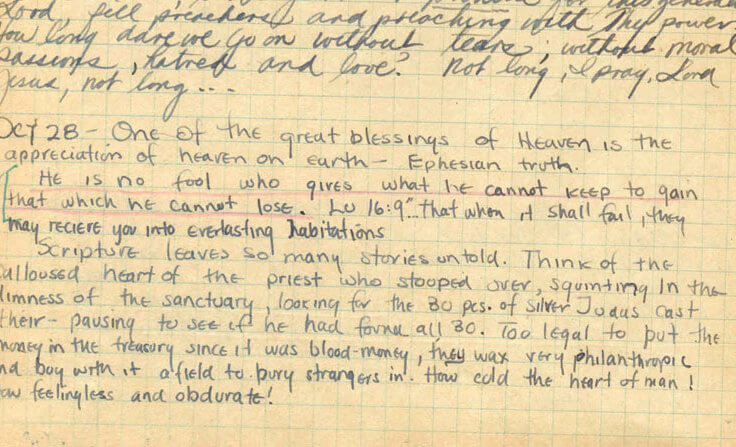 Lord, fill preachers and preaching with Thy power.
How long dare we go on without tears, without moral
passions, hatred and love? Not long, I pray, Lord
Jesus, not long...
Oct 28 - One of the great blessings of Heaven is the
appreciation of heaven on earth - Ephesian truth.
He is no fool who gives what he cannot keep to gain
that which he cannot lose. Lu 16:9 "..that when it shall fail, they
may reciere you into everlasting habitations
Scripture leaves so many stories untold. Think of the
calloused heart of the priest who stooped over, squinting in the
dimness of the sanctuary, looking for the 30 pcs. of silver Judas cast
their - pausing to see if he had found all 30. Too legal to put the
money in the treasury since it was blood-money, they wax very philanthropic
and buy with it a field to bury strangers in. How cold the heart of man!
How feelingless and obdurate!